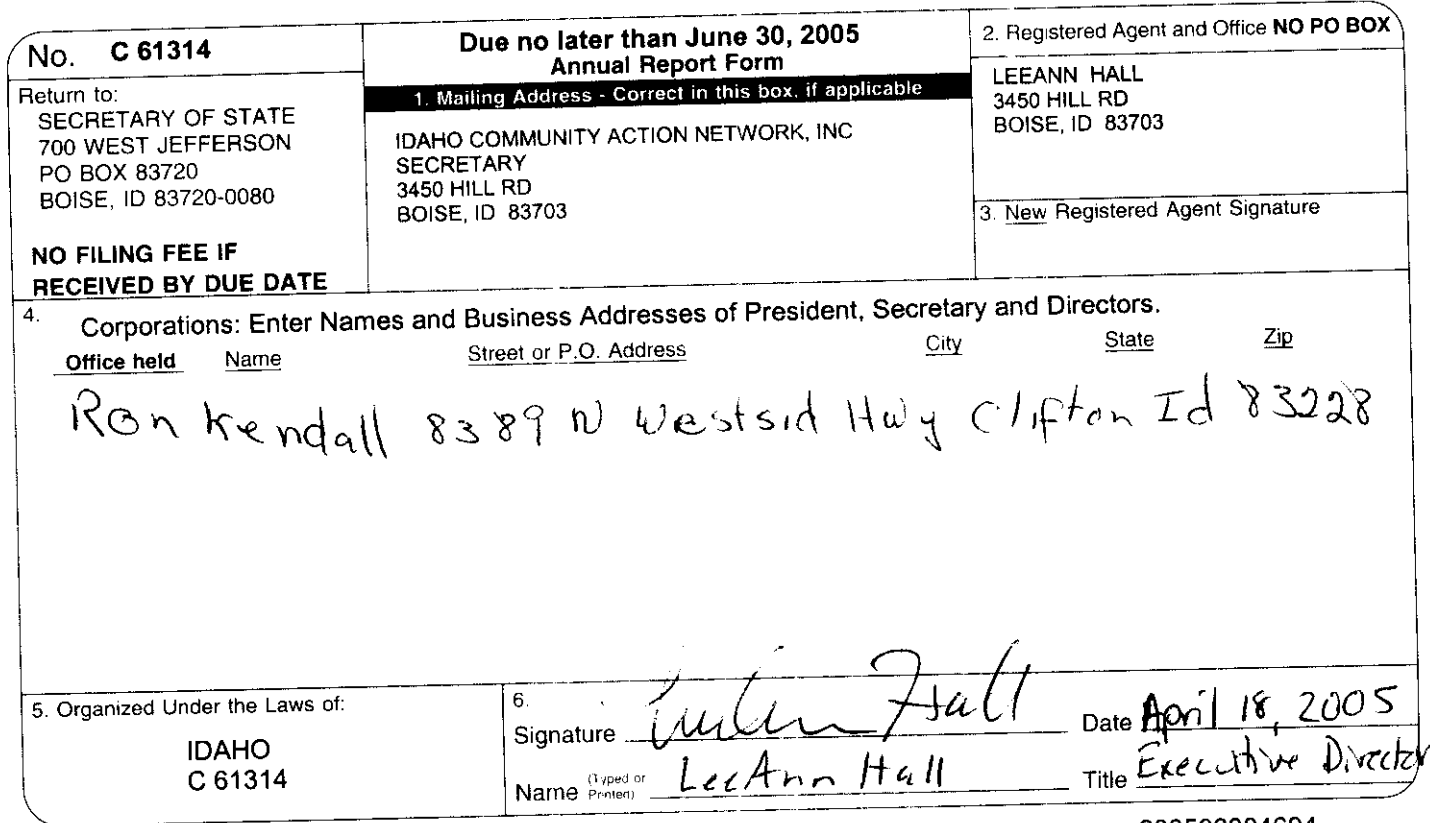 No. C 61314
Return to:
SECRETARY OF STATE
700 WEST JEFFERSON
PO BOX 83720
BOISE, ID 83720-0080
NO FILING FEE IF
RECEIVED BY DUE DATE
Due no later than June 30, 2005
Annual Report Form
1. Mailing Address - Correct in this box, if applicable
IDAHO COMMUNITY ACTION NETWORK, INC
SECRETARY
3450 HILL RD
BOISE, ID 83703
2. Registered Agent and Office NO PO BOX
LEEANN HALL
3450 HILL RD
BOISE, ID 83703
3. New Registered Agent Signature
4. Corporations: Enter Names and Business Addresses of President, Secretary and Directors.
Office held Name Street or P.O. Address City State Zip
Ron Kendall 8389 N Westsid Hwy Clifton Id 83228
5. Organized Under the Laws of:
IDAHO
C 61314
6.
Signature Hall Date April 18, 2005
Name (Typed or Printed) LeeAnn Hall Title Executive Director